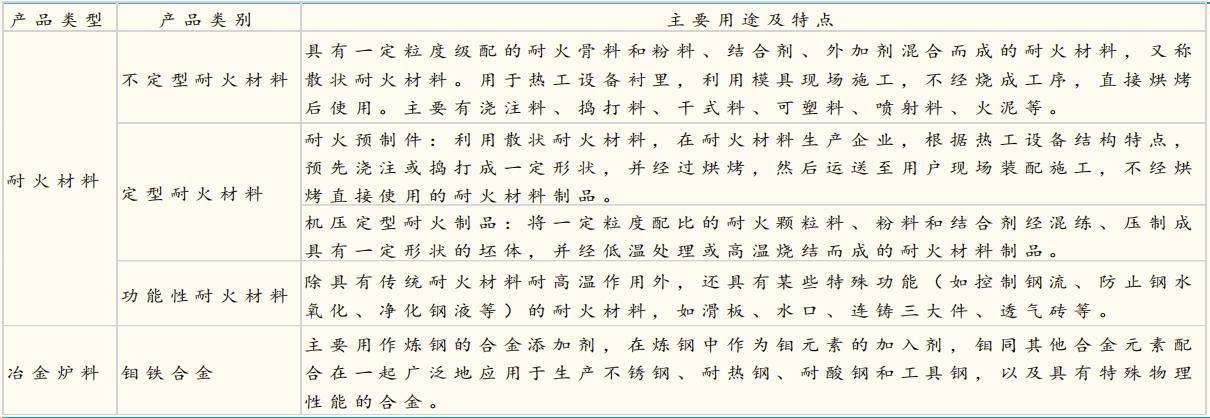 产品类型 产品类别 主要用途及特点
耐火材料
不定型耐火材料
具有一定粒度级配的耐火骨料和粉料、结合剂、外加剂混合而成的耐火材料，又称
散状耐火材料。用于热工设备衬里，利用模具现场施工，不经烧成工序，直接烘烤
后使用。主要有浇注料、捣打料、干式料、可塑料、喷射料、火泥等。
定型耐火材料
耐火预制件：利用散状耐火材料，在耐火材料生产企业，根据热工设备结构特点，
预先浇注或捣打成一定形状，并经过烘烤，然后运送至用户现场装配施工，不经烘
烤直接使用的耐火材料制品。
机压定型耐火制品：将一定粒度配比的耐火颗粒料、粉料和结合剂经混练、压制成
具有一定形状的坯体，并经低温处理或高温烧结而成的耐火材料制品。
功能性耐火材料
除具有传统耐火材料耐高温作用外，还具有某些特殊功能（如控制钢流、防止钢水
氧化、净化钢液等）的耐火材料，如滑板、水口、连铸三大件、透气砖等。
冶金炉料
钼铁合金
主要用作炼钢的合金添加剂，在炼钢中作为钼元素的加入剂，钼同其他合金元素配
合在一起广泛地应用于生产不锈钢、耐热钢、耐酸钢和工具钢，以及具有特殊物理
性能的合金。